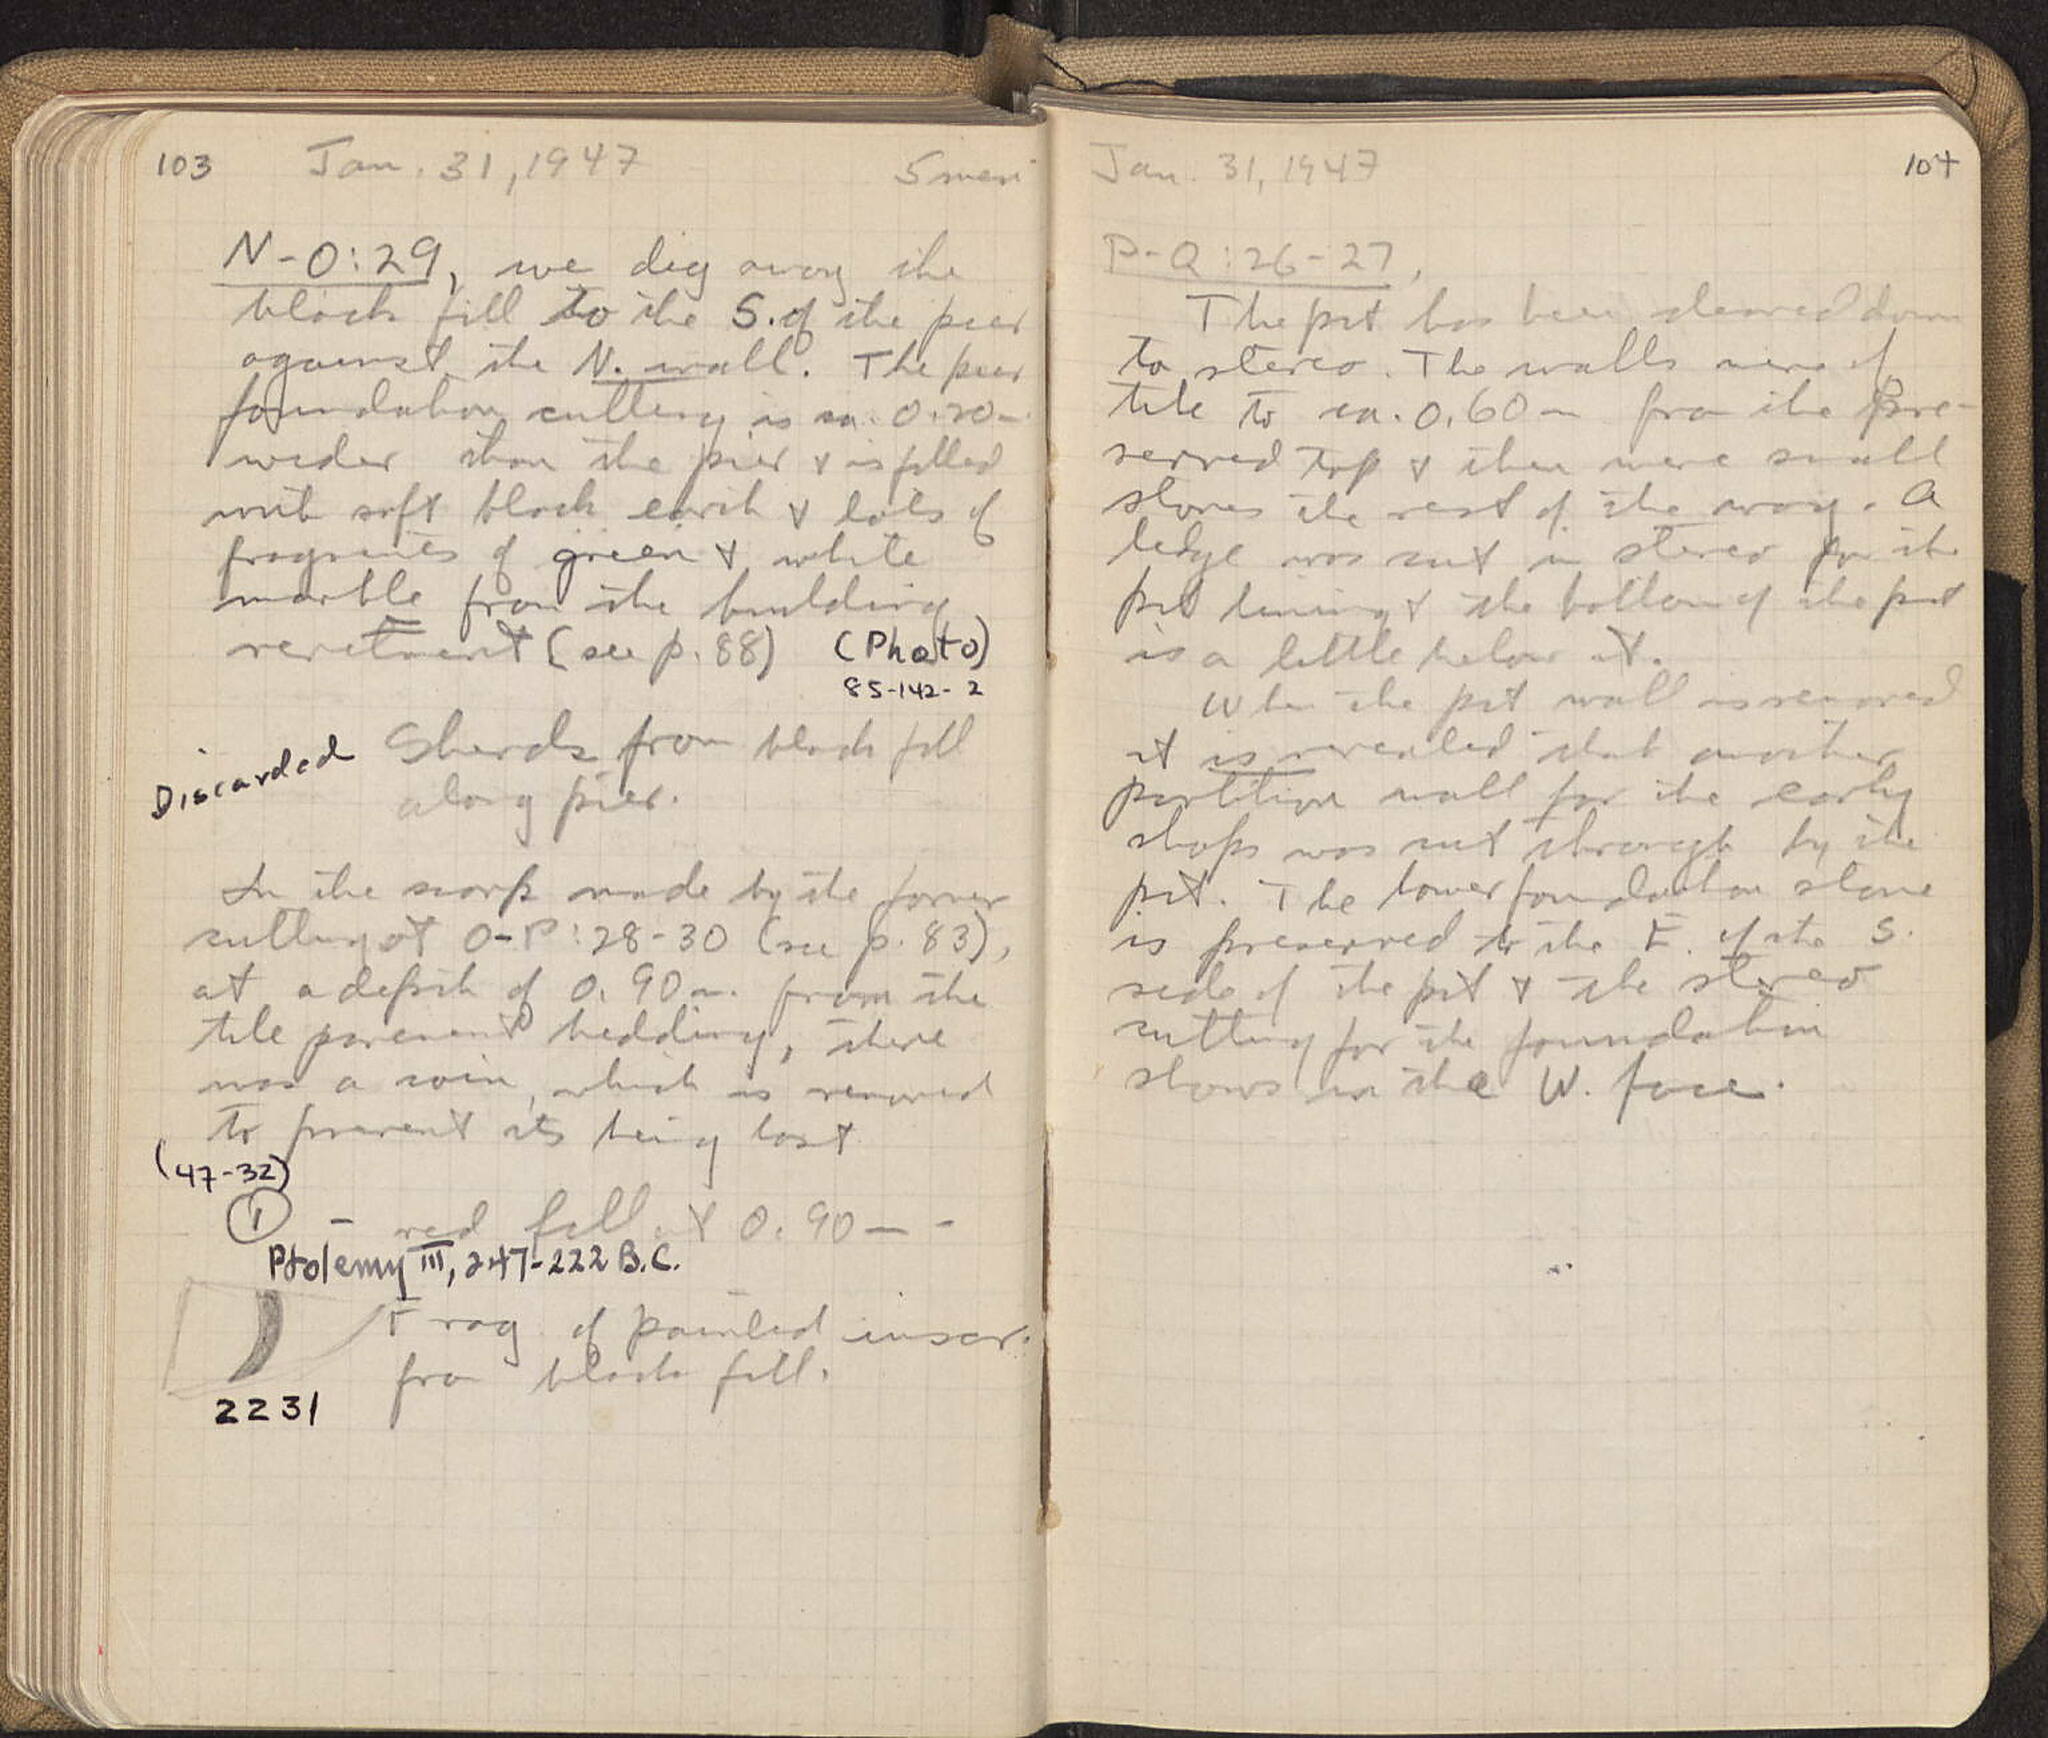 103 Jan. 31, 1947 5 men
N-O:29, we dig away the
black fill to the S. of the pier
against the N. wall. The pier
foundation cutting is ca. 0.20m.
wider than the pier & is filled
with soft black earth & lots of
fragments of green & white
marble from the building
revetment (see p. 88) (Photo)
85-142-2
Discarded Sherds from black fill
along pier.
In the scarp made by the former
cutting at O-P:28-30 (see p. 83),
at a depth of 0.90m. from the
tile pavement bedding, there
was a coin, which is removed
to prevent its being lost
(47-32)
① - red fill at 0.90m -
Ptolemy III, 247-222 B.C.
Frag. of painted inscr.
from black fill.
2231
Jan. 31, 1947 104
P-Q:26-27,
The pit has been cleared down
to stereo. The walls were of
tile to ca. 0.60m from the pre-
served top & then were small
stones the rest of the way. A
ledge was cut in stereo for the
pit lining & the bottom of the pit
is a little below it.
When the pit wall is removed
it is revealed that another
partition wall for the early
shops was cut through by the
pit. The lower foundation stone
is preserved to the E. of the S.
side of the pit & the stereo
cutting for the foundation
shows in the W. face.